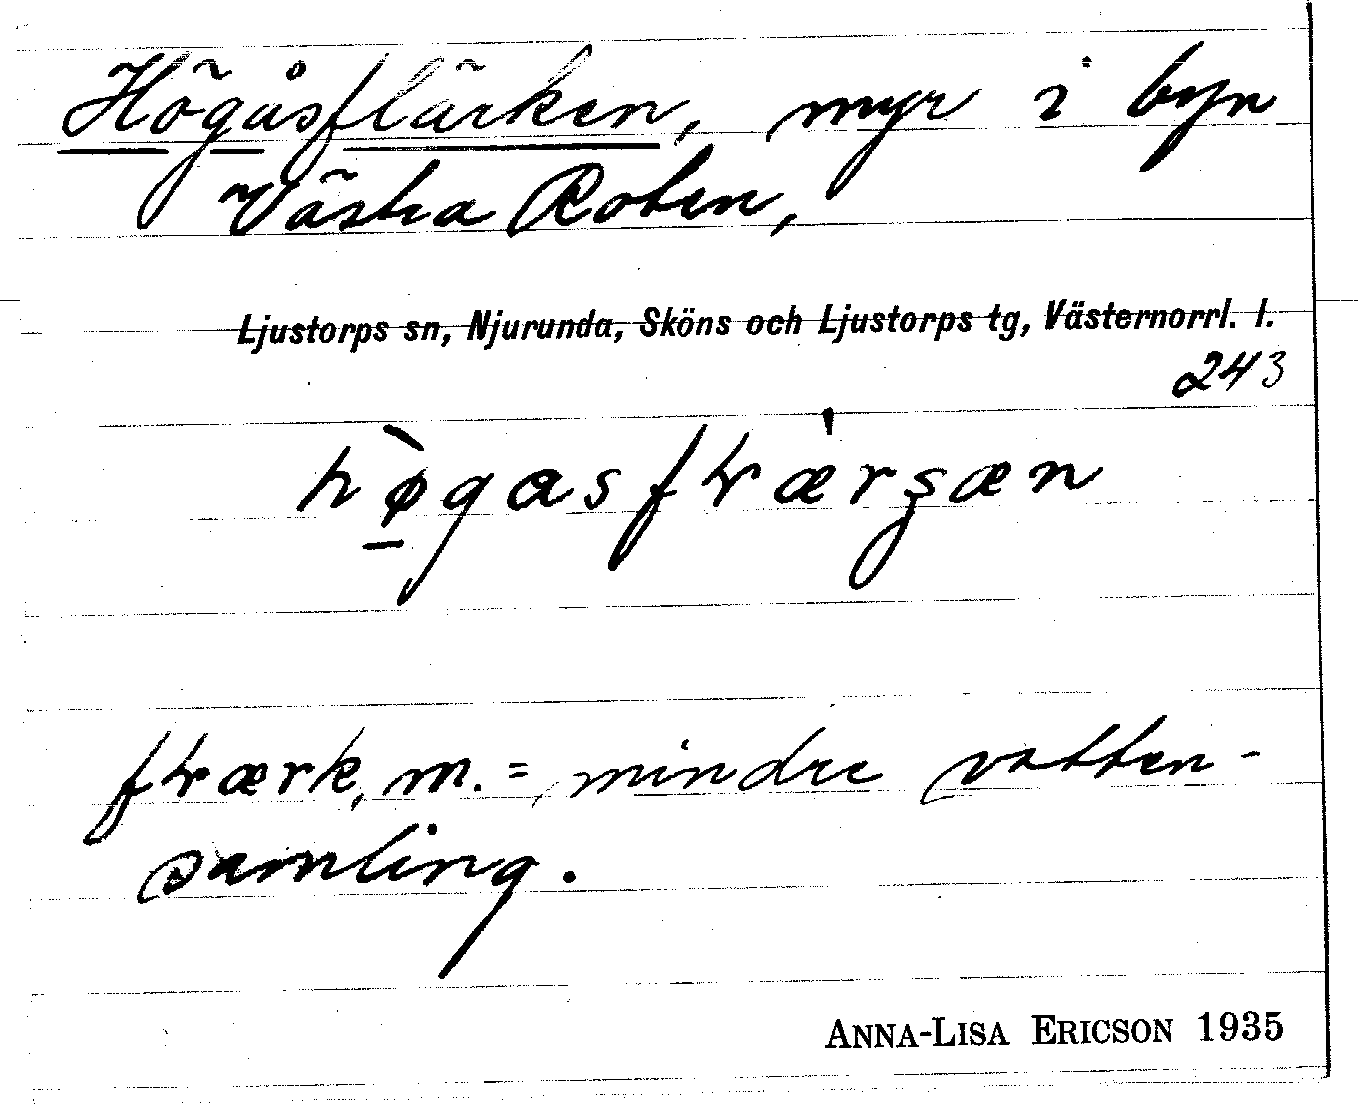 Högåsflärken, myr i byn
Västra Roten,
Ljustorps sn, Njurunda, Sköns och Ljustorps tg, Västernorrl. l.
243
hø̀gasfɽæ̀rʂæn
fɽærk, m. = mindre vatten-
samling.
ANNA-LISA ERICSON 1935